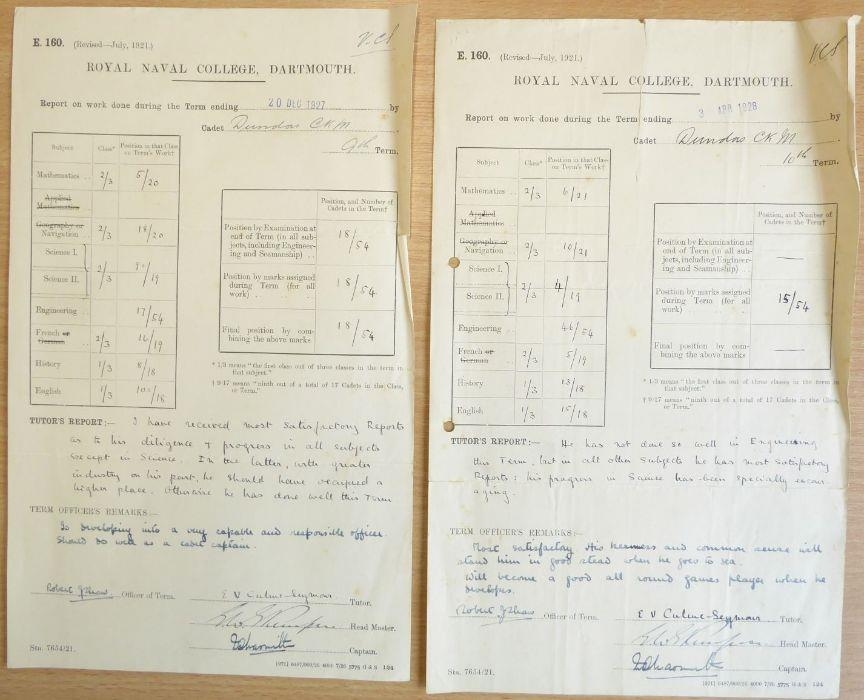 V.C.S
E. 160. (Revised—July, 1921.)
ROYAL NAVAL COLLEGE, DARTMOUTH.
Report on work done during the Term ending 20 DEC 1927 by
Cadet Dundas C K M
9th Term.
Subject Class* Position in that Class on Term's Work†
Mathematics .. 2/3 5/20
Applied Mathematics
Geography or Navigation .. 2/3 18/20
Science I.
Science II. 2/3 /19
Engineering .. 17/54
French or German .. 2/3 16/19
History 1/3 8/18
English 1/3 10/18
Position, and Number of
Cadets in the Term†
Position by Examination at
end of Term (in all sub-
jects, including Engineer-
ing and Seamanship) .. 18/54
Position by marks assigned
during Term (for all
work) .. 18/54
Final position by com-
bining the above marks 18/54
* 1/3 means "the first class out of three classes in the term in
that subject."
† 9/17 means "ninth out of a total of 17 Cadets in the Class,
or Term."
TUTOR'S REPORT:— I have received most satisfactory Reports
as to his diligence & progress in all subjects
except in Science. In the latter, with greater
industry on his part, he should have occupied a
higher place. Otherwise he has done well this Term
TERM OFFICER'S REMARKS:—
Is developing into a very capable and responsible officer.
Should do well as a cadet captain.
Robert J Shaw Officer of Term. E V Culme-Seymour Tutor.
Head Master.
Captain.
Sta. 7654/21.
V.C.S
E. 160. (Revised—July, 1921.)
ROYAL NAVAL COLLEGE, DARTMOUTH.
Report on work done during the Term ending 3 APR 1928 by
Cadet Dundas C K M
10th Term.
Subject Class* Position in that Class on Term's Work†
Mathematics .. 2/3 6/21
Applied Mathematics
Geography or Navigation .. 2/3 10/21
Science I.
Science II. 2/3 4/19
Engineering .. 46/54
French or German .. 2/3 5/19
History 1/3 13/18
English 1/3 15/18
Position, and Number of
Cadets in the Term†
Position by Examination at
end of Term (in all sub-
jects, including Engineer-
ing and Seamanship) .. —
Position by marks assigned
during Term (for all
work) .. 15/54
Final position by com-
bining the above marks —
* 1-3 means "the first class out of three classes in the term in
that subject."
† 9-17 means "ninth out of a total of 17 Cadets in the Class,
or Term."
TUTOR'S REPORT:— He has not done so well in Engineering
this Term, but in all other subjects he has most satisfactory
Reports: his progress in Science has been specially encour-
aging.
TERM OFFICER'S REMARKS:—
Most satisfactory. His keenness and common sense will
stand him in good stead when he goes to sea.
Will become a good all round games player when he
develops.
Robert J Shaw Officer of Term. E V Culme-Seymour Tutor.
Head Master.
Captain.
Sta. 7654/21.